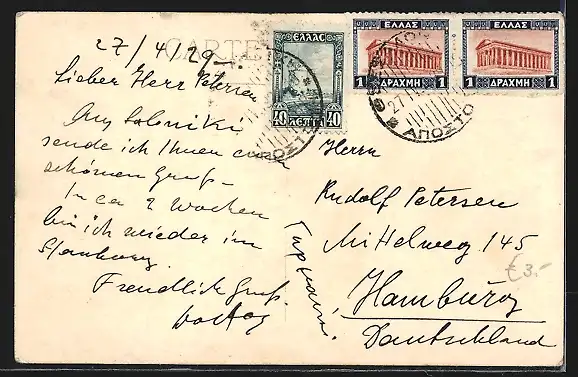 27/4/29
CARTE
Lieber Herr Petersen
Aus Saloniki
sende ich Ihnen einen
schönen Gruß.
In ca 2 Wochen
bin ich wieder in
Hamburg.
Freundlich Gruß.
ΕΛΛΑΣ
40 ΛΕΠΤΑ 40
ΕΛΛΑΣ
1 ΔΡΑΧΜΗ 1
ΕΛΛΑΣ
1 ΔΡΑΧΜΗ 1
ΑΠΟΣΤΟ
Herrn
Rudolf Petersen
Mittelweg 145
Hamburg
Deutschland
Γερμανία
€ 3.-